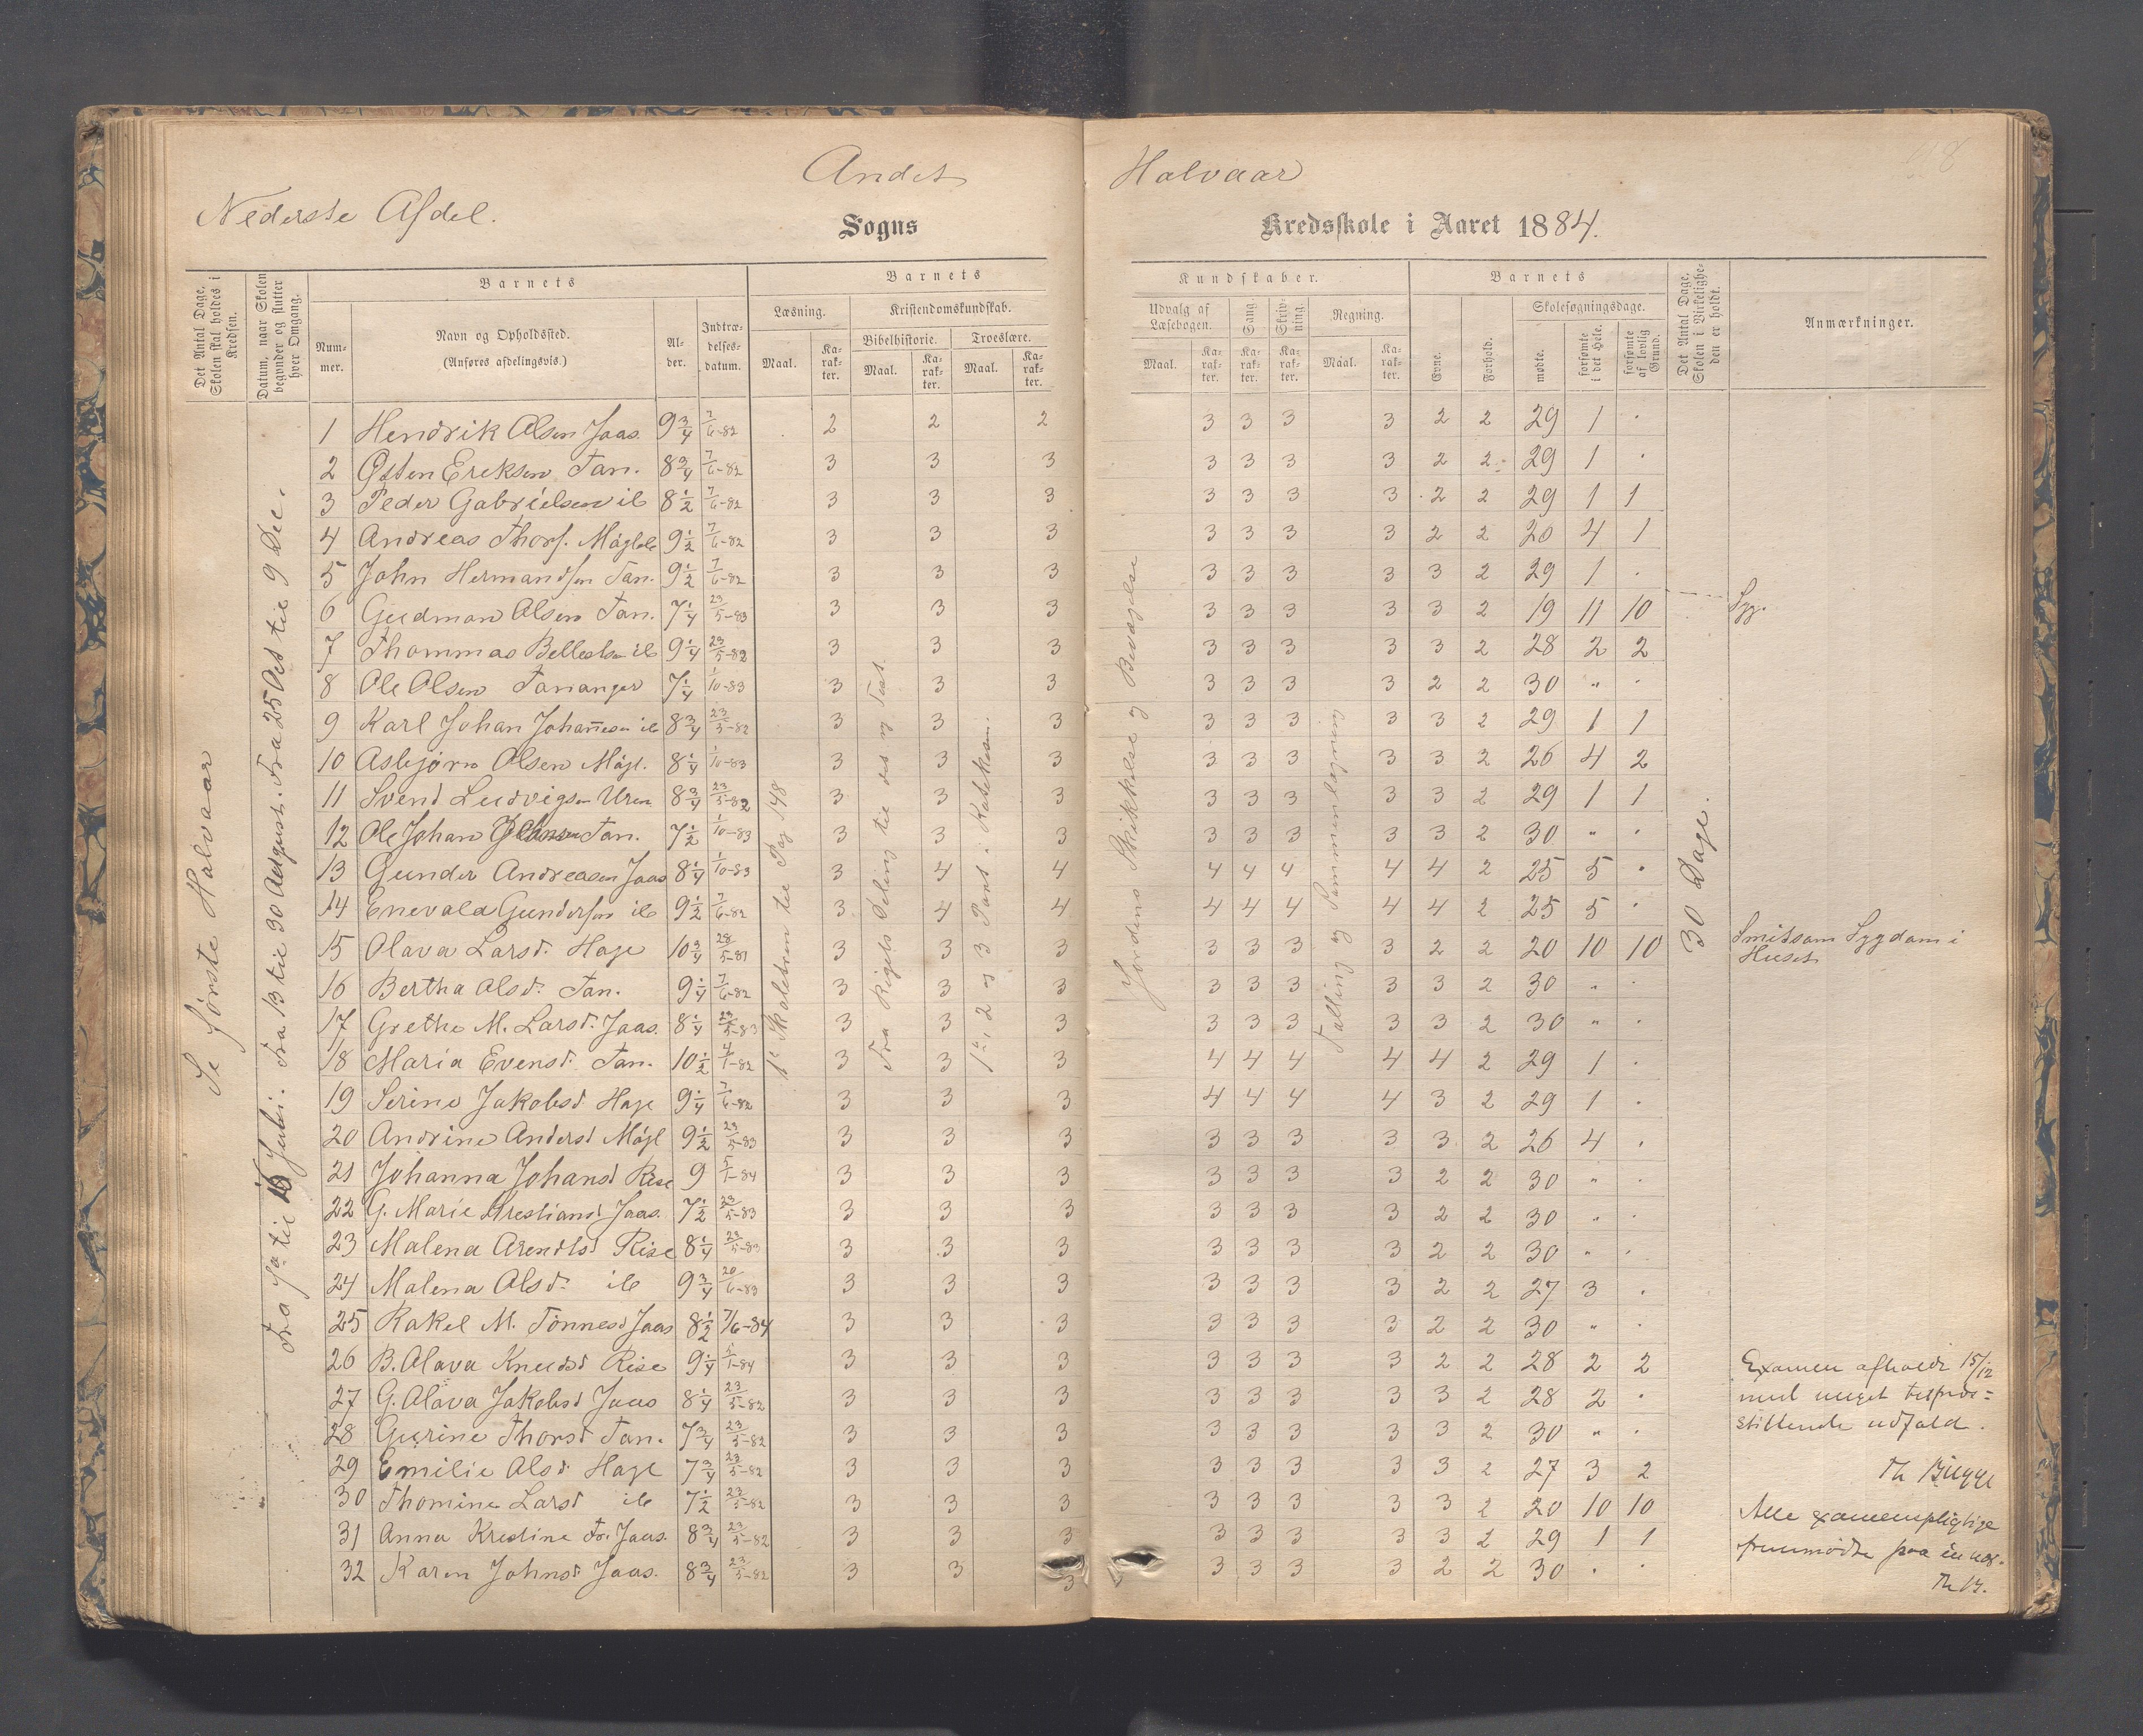 Andet Halvaar
Nederste Afdel.
Sogns Kredsskole i Aaret 1884.
Det Antal Dage, Skolen skal holdes i Kredsen.
Datum, naar Skolen begynder og slutter hver Omgang.
Barnets
Nummer.
Navn og Opholdssted.
(Anføres afdelingsvis.)
Alder.
Indtrædelsesdatum.
Barnets Kundskaber.
Læsning.
Maal.
Karakter.
Kristendomskundskab.
Bibelhistorie.
Maal.
Karakter.
Troeslære.
Maal.
Karakter.
Udvalg af Læsebogen.
Maal.
Karakter.
Sang.
Karakter.
Skrivning.
Karakter.
Regning.
Maal.
Karakter.
Barnets
Evne.
Forhold.
Skolesøgningsdage.
mødte.
forsømte i det Hele.
forsømte af lovlig Grund.
Det Antal Dage, Skolen i Virkeligheden er holdt.
Anmærkninger.
Se første Halvaar
Fra 13 til 30 August. Fra 25 Oct til 9 Dec.
til Pag 148
Fra Rigets Deling til det ny Test.
1ste, 2 og 3 Part. Katekesen.
Jordens Skikkelse og Bevægelse
Talling og Sammenlægning
30 Dage.
1 Hendrik Olsen Jaas. 9 3/4 7/6-82 2 2 2 3 3 3 3 2 2 29 1 .
2 Østen Ereksen Tan. 8 3/4 7/6-82 3 3 3 3 3 3 3 2 2 29 1 .
3 Peder Gabrielsen ib 8 1/2 7/6-82 3 3 3 3 3 3 3 2 2 29 1 1
4 Andreas Thors. 9 1/2 7/6-82 3 3 3 3 3 3 3 2 2 20 4 1
5 John Hermandsen Tan. 9 1/2 7/6-82 3 3 3 3 3 3 3 3 2 29 1 .
6 Gudman Olsen Tan. 7 1/4 23/5-83 3 3 3 3 3 3 3 3 2 19 11 10 Syg.
7 Thommas ib 9 1/4 23/5-82 3 3 3 3 3 3 3 3 2 28 2 2
8 Ole Olsen Tananger 7 1/4 1/10-83 3 3 3 3 3 3 3 2 2 30 " .
9 Karl Johan Johannesen ib 8 3/4 23/5-82 3 3 3 3 3 3 3 3 2 29 1 1
10 Asbjørn Olsen Mågl. 8 1/4 1/10-83 3 3 3 3 3 3 3 3 2 26 4 2
11 Svend Ludvigsen Uren 8 3/4 23/5-82 3 3 3 3 3 3 3 3 2 29 1 1
12 Ole Johan Tan. 7 1/2 1/10-83 3 3 3 3 3 3 3 3 2 30 " .
13 Gunder Andreasen Jaas 8 1/4 1/10-83 3 4 4 4 4 4 4 4 2 25 5 .
14 Enevald Gundersen ib 9 1/2 7/6-82 3 4 4 4 4 4 4 4 2 25 5 .
15 Olava Larsd. Hage 10 3/4 28/5-81 3 3 3 3 3 3 3 2 2 20 10 10 Smitsom Sygdom i Huset
16 Bertha Olsd. Tan. 9 1/4 7/6-82 3 3 3 3 3 3 3 3 2 30 " .
17 Grethe M. Larsd. Jaas. 8 1/4 23/5-83 3 3 3 3 3 3 3 3 2 30 " .
18 Maria Evensd. Tan. 10 1/2 4/1-82 3 3 3 4 4 4 4 4 2 29 1 .
19 Serine Jakobsd Hage 9 1/4 7/6-82 3 3 3 4 4 4 4 3 2 29 1 .
20 Andrine Andersd Mågl 9 1/2 23/5-83 3 3 3 3 3 3 3 3 2 26 4 .
21 Johanna Johansd Rise 9 5/1-84 3 3 3 3 3 3 3 2 2 30 " .
22 G. Marie Krestiansd Jaas. 7 1/2 23/5-83 3 3 3 3 3 3 3 2 2 30 " .
23 Malena Arendtsd Rise 8 1/4 23/5-83 3 3 3 3 3 3 3 2 2 30 " .
24 Malena Olsd. ib 9 3/4 20/6-83 3 3 3 3 3 3 3 2 2 27 3 .
25 Rakel M. Tønnesd Jaas 8 1/2 7/6-84 3 3 3 3 3 3 3 2 2 30 " .
26 B. Olava Knudsd Rise 9 1/4 5/1-84 3 3 3 3 3 3 3 2 2 28 2 2
27 G. Olava Jakobsd Jaas 8 1/4 23/5-82 3 3 3 3 3 3 3 3 2 28 2 .
28 Gurine Thorsd Tan. 7 3/4 23/5-82 3 3 3 3 3 3 3 3 2 30 " .
29 Emilie Olsd. Hage 7 3/4 23/5-82 3 3 3 3 3 3 3 3 2 27 3 2
30 Thomine Larsd ib 7 1/2 23/5-82 3 3 3 3 3 3 3 3 2 20 10 10
31 Anna Krestine Jaas. 8 3/4 23/5-82 3 3 3 3 3 3 3 3 2 29 1 1
32 Karen Johnsd Jaas. 8 3/4 23/5-82 3 3 3 3 3 3 3 2 2 30 .
Examen afholdt 15/12
med meget tilfreds=
stillende udfald.
Th Bugge
Alle examenspligtige
fremmødte paa en nær.
Th B.